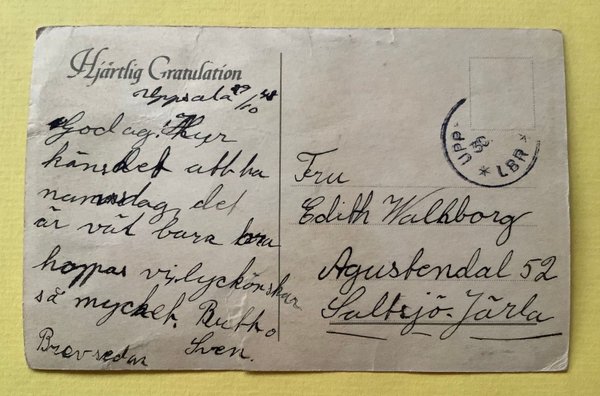 Hjärtlig Gratulation
Uppsala 29/10 48
Godag. Hur
käns det att ha
namsdag, det
är väl bara bra
hoppas vi. lyckönskar
så mycket. Butto
Sven.
Brev sedan
UPP
LBR
Fru
Edith Wallborg
Agustendal 52
Saltsjö-Järla